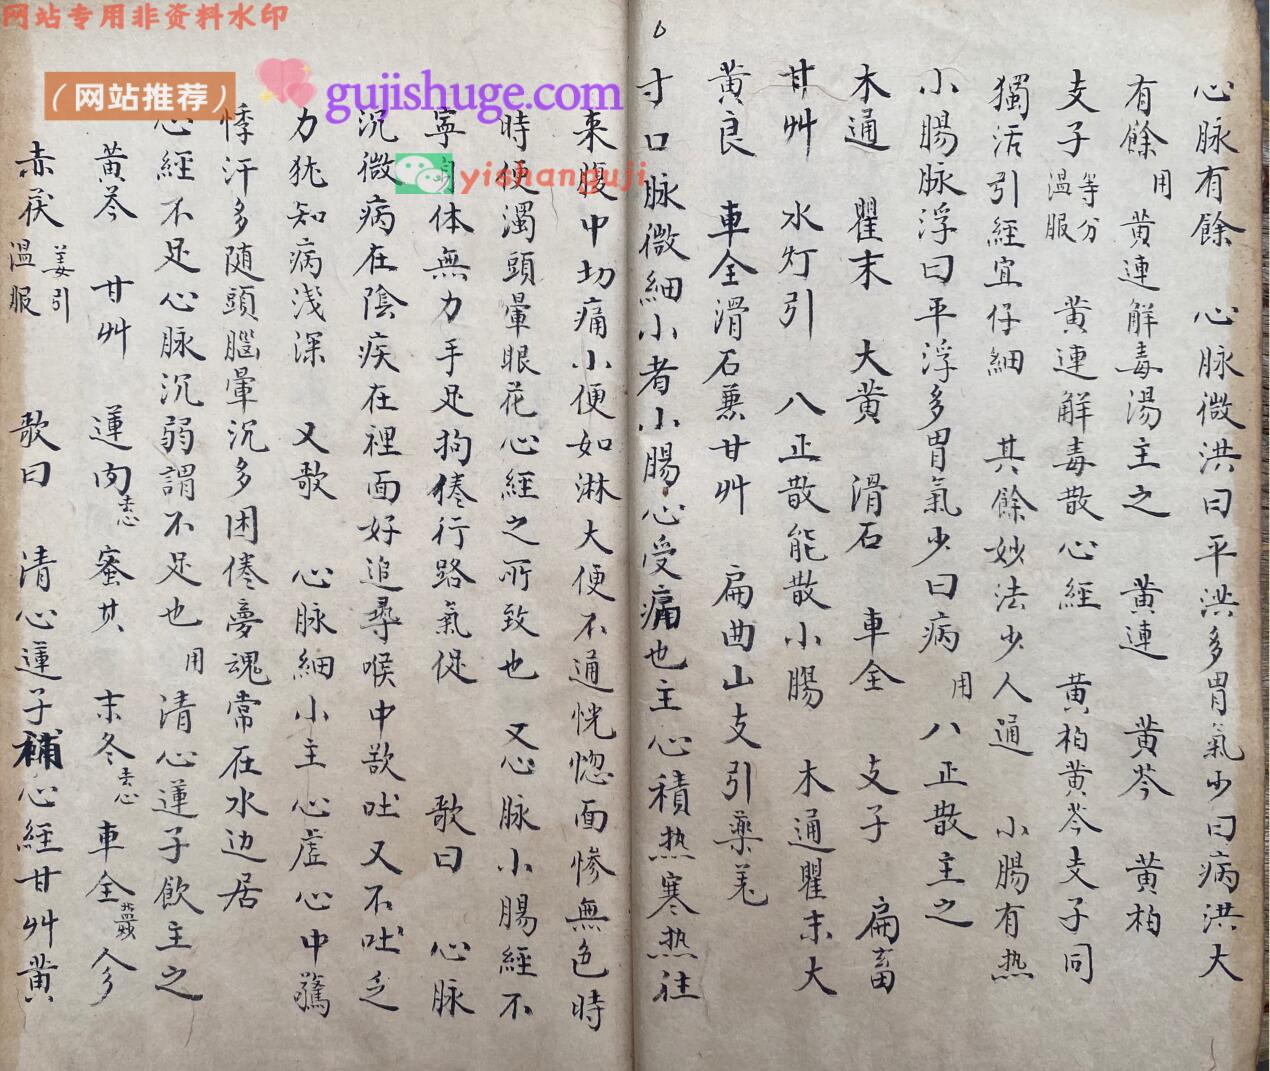 网站专用非资料水印
（网站推荐）
gujishuge.com
yishanguji
6
心脉有餘 心脉微洪曰平洪多胃氣少曰病洪大
有餘用黃連解毒湯主之 黃連 黃芩 黃柏
支子等分温服 黃連解毒散心經 黃柏黃芩支子同
獨活引經宜仔細 其餘妙法少人通 小腸有热
小腸脉浮曰平浮多胃氣少曰病用八正散主之
木通 瞿末 大黄 滑石 車全 支子 扁畜
甘艸 水灯引 八正散能散小腸 木通瞿末大
黄良 車全滑石兼甘艸 扁曲山支引藥羌
寸口脉微細小者小腸心受痛也主心積热寒热往
来腹中切痛小便如淋大便不通恍惚面惨無色時
時便濁頭暈眼花心經之所致也 又心脉小腸經不
寧身体無力手足拘倦行路氣促 歌曰 心脉
沉微病在陰疾在裡面好追尋喉中欲吐又不吐乏
力犹知病浅深 又歌 心脉細小主心虚心中驚
悸汗多随頭腦暈沉多困倦夢魂常在水边居
心經不足心脉沉弱謂不足也用清心蓮子飲主之
黃芩 甘艸 蓮肉去心 蜜芪 末冬去心 車全 参
赤茯姜引温服 歌曰 清心蓮子補心經甘艸黄